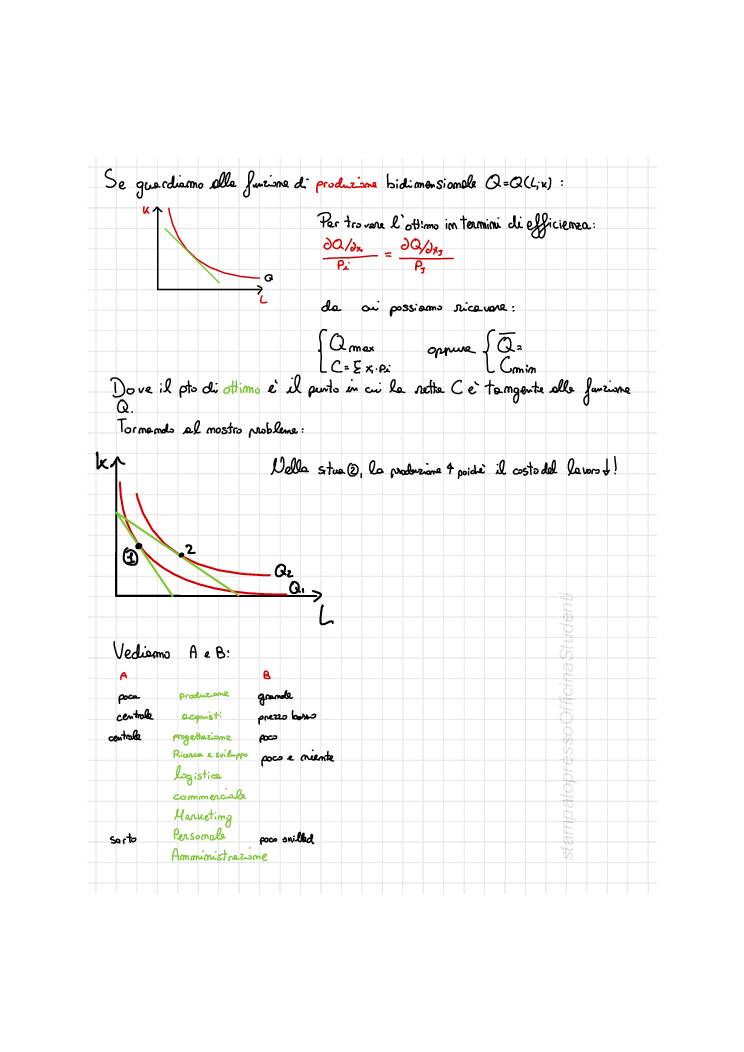 Se guardiamo alla funzione di produzione bidimensionale Q=Q(L;k) :
K
Q
L
Per trovare l'ottimo in termini di efficienza:
∂Q/∂xi / Pi = ∂Q/∂xj / Pj
da cui possiamo ricavare :
{ Qmax
C = Σ xi·pi
oppure { Q̅ =
Cmin
Dove il pto di ottimo è il punto in cui la retta C è tangente alla funzione
Q.
Tornando al nostro problema:
K
Nella situa ②, la produzione ↑ poiché il costo del lavoro ↓!
①
2
Q2
Q1
L
Vediamo A e B:
A B
poca produzione grande
centrale acquisti prezzo basso
centrale progettazione poco
Ricerca e sviluppo poco e niente
logistica
commerciale
Marketing
sarto Personale poco skilled
Amministrazione
stampatopressoOfficinaStudenti